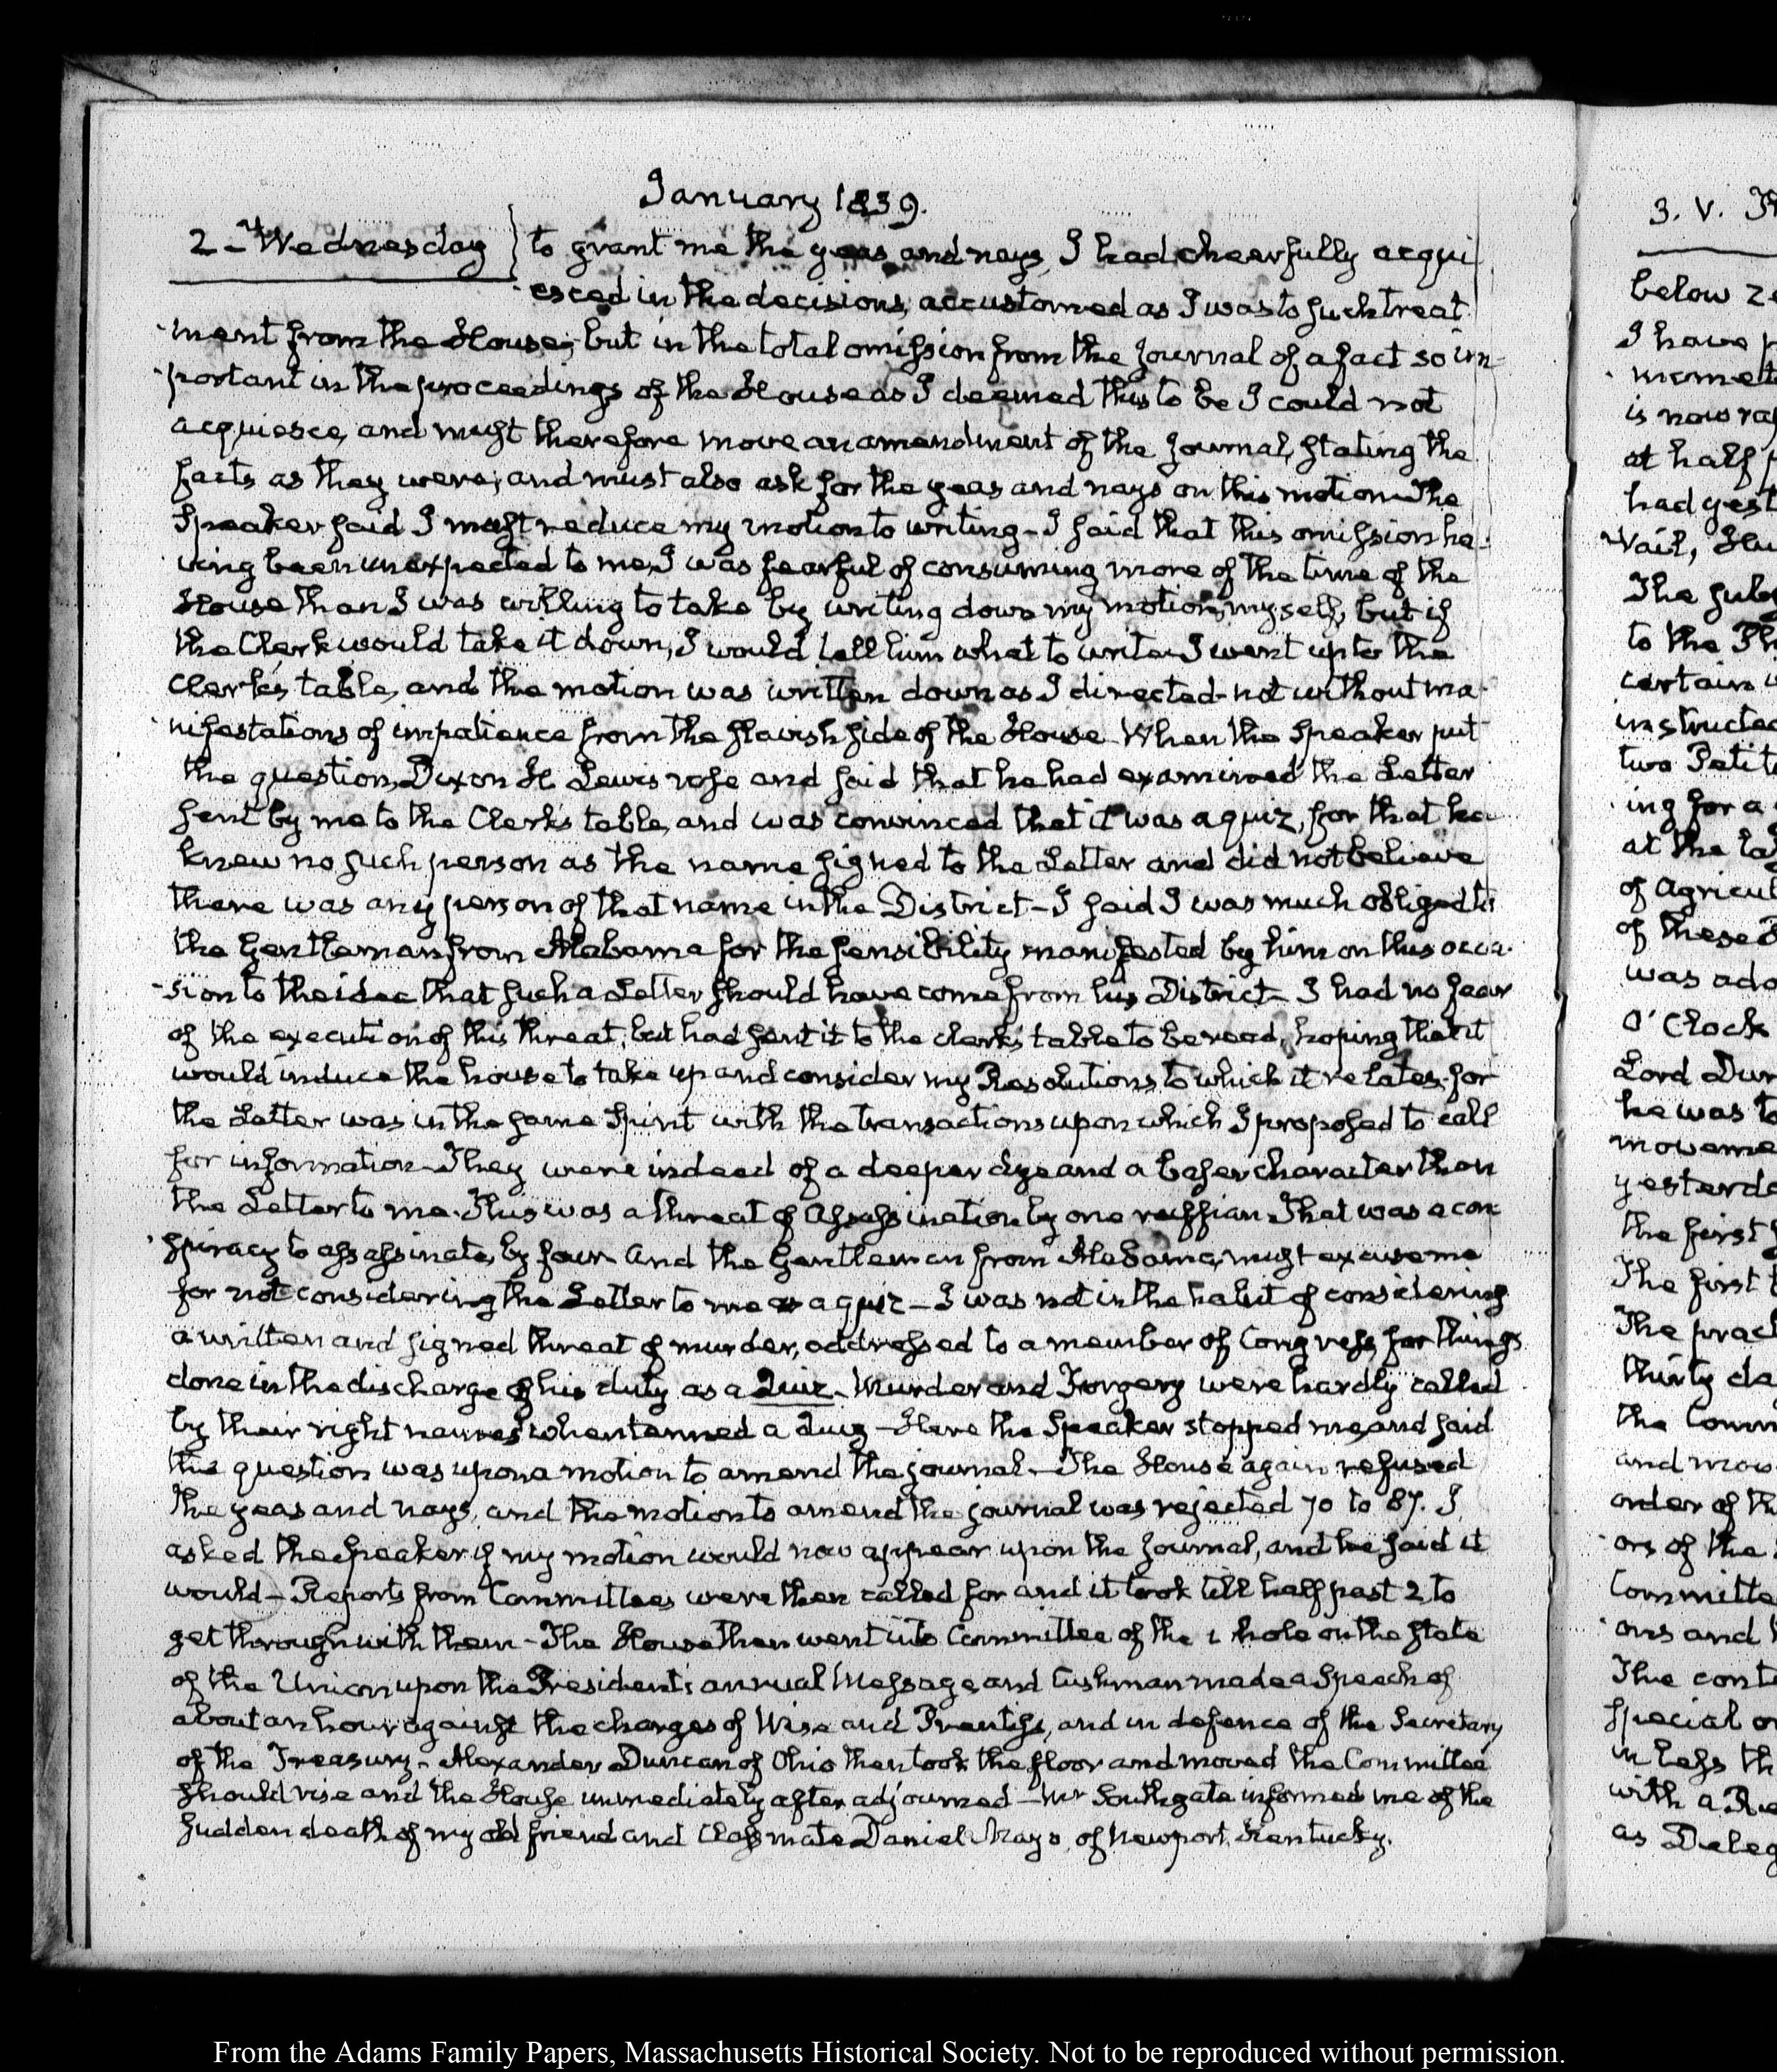 January 1839.
2 - Wednesday } to grant me the yeas and nays, I had cheerfully acqui
esced in the decisions, accustomed as I was to such treat
ment from the House; but in the total omission from the Journal of a fact so im-
portant in the proceedings of the House as I deemed this to be I could not
acquiesce, and must therefore move an amendment of the Journal, stating the
facts as they were; and must also ask for the yeas and nays on this motion. The
Speaker said I must reduce my motion to writing - I said that this omission ha-
ving been unexpected to me, I was fearful of consuming more of the time of the
House than I was willing to take by writing down my motion, myself, but if
the Clerk would take it down, I would tell him what to write. I went up to the
Clerk's table, and the motion was written down as I directed - not without ma-
nifestations of impatience from the slavish side of the House. When the Speaker put
the question, Dixon H Lewis rose and said that he had examined the Letter
sent by me to the Clerk's table, and was convinced that it was a quiz, for that he
knew no such person as the name signed to the Letter and did not believe
there was any person of that name in the District - I said I was much obliged to
the Gentleman from Alabama for the sensibility manifested by him on this occa-
-sion to the idea that such a Letter should have come from his District - I had no fear
of the execution of this threat, but had sent it to the clerk's table to be read, hoping that it
would induce the house to take up and consider my Resolutions, to which it relates. for
the Letter was in the same Spirit with the transactions upon which I proposed to call
for information. They were indeed of a deeper dye and a baser character than
the Letter to me. This was a threat of Assassination by one ruffian. That was a con
spiracy to assassinate, by four. And the Gentleman from Alabama, must excuse me
for not considering the Letter to me as a quiz - I was not in the habit of considering
a written and signed threat of murder, addressed to a member of Congress, for things
done in the discharge of his duty as a Quiz. Murder and Forgery were hardly called
by their right names when termed a Quiz - Here the Speaker stopped me, and said
the question was upon a motion to amend the journal. - The House again refused
the yeas and nays, and the motion to amend the journal was rejected 70 to 87. I
asked the Speaker if my motion would now appear upon the Journal, and he said it
would - Reports from Committees were then called for and it took till half past 2 to
get through with them - The House then went into Committee of the whole on the state
of the Union upon the President's annual Message, and Cushman made a Speech of
about an hour against the charges of Wise and Prentiss, and in defence of the Secretary
of the Treasury - Alexander Duncan of Ohio then took the floor and moved the Committee
should rise and the House immediately after adjourned - Mr Southgate informed me of the
sudden death of my old friend and Classmate Daniel Mayo, of Newport, Kentucky.
3. V.
below
I have
is now
at half
had
Vail,
The
to the
certain
instructed
two
ing for a
at the
of
of these
was
O'Clock
Lord
he was to
yesterday
the first
The first
The
thirty
the
and
order of the
ors of the
Committee
ons and
The
special
in less
with a
as
From the Adams Family Papers, Massachusetts Historical Society. Not to be reproduced without permission.